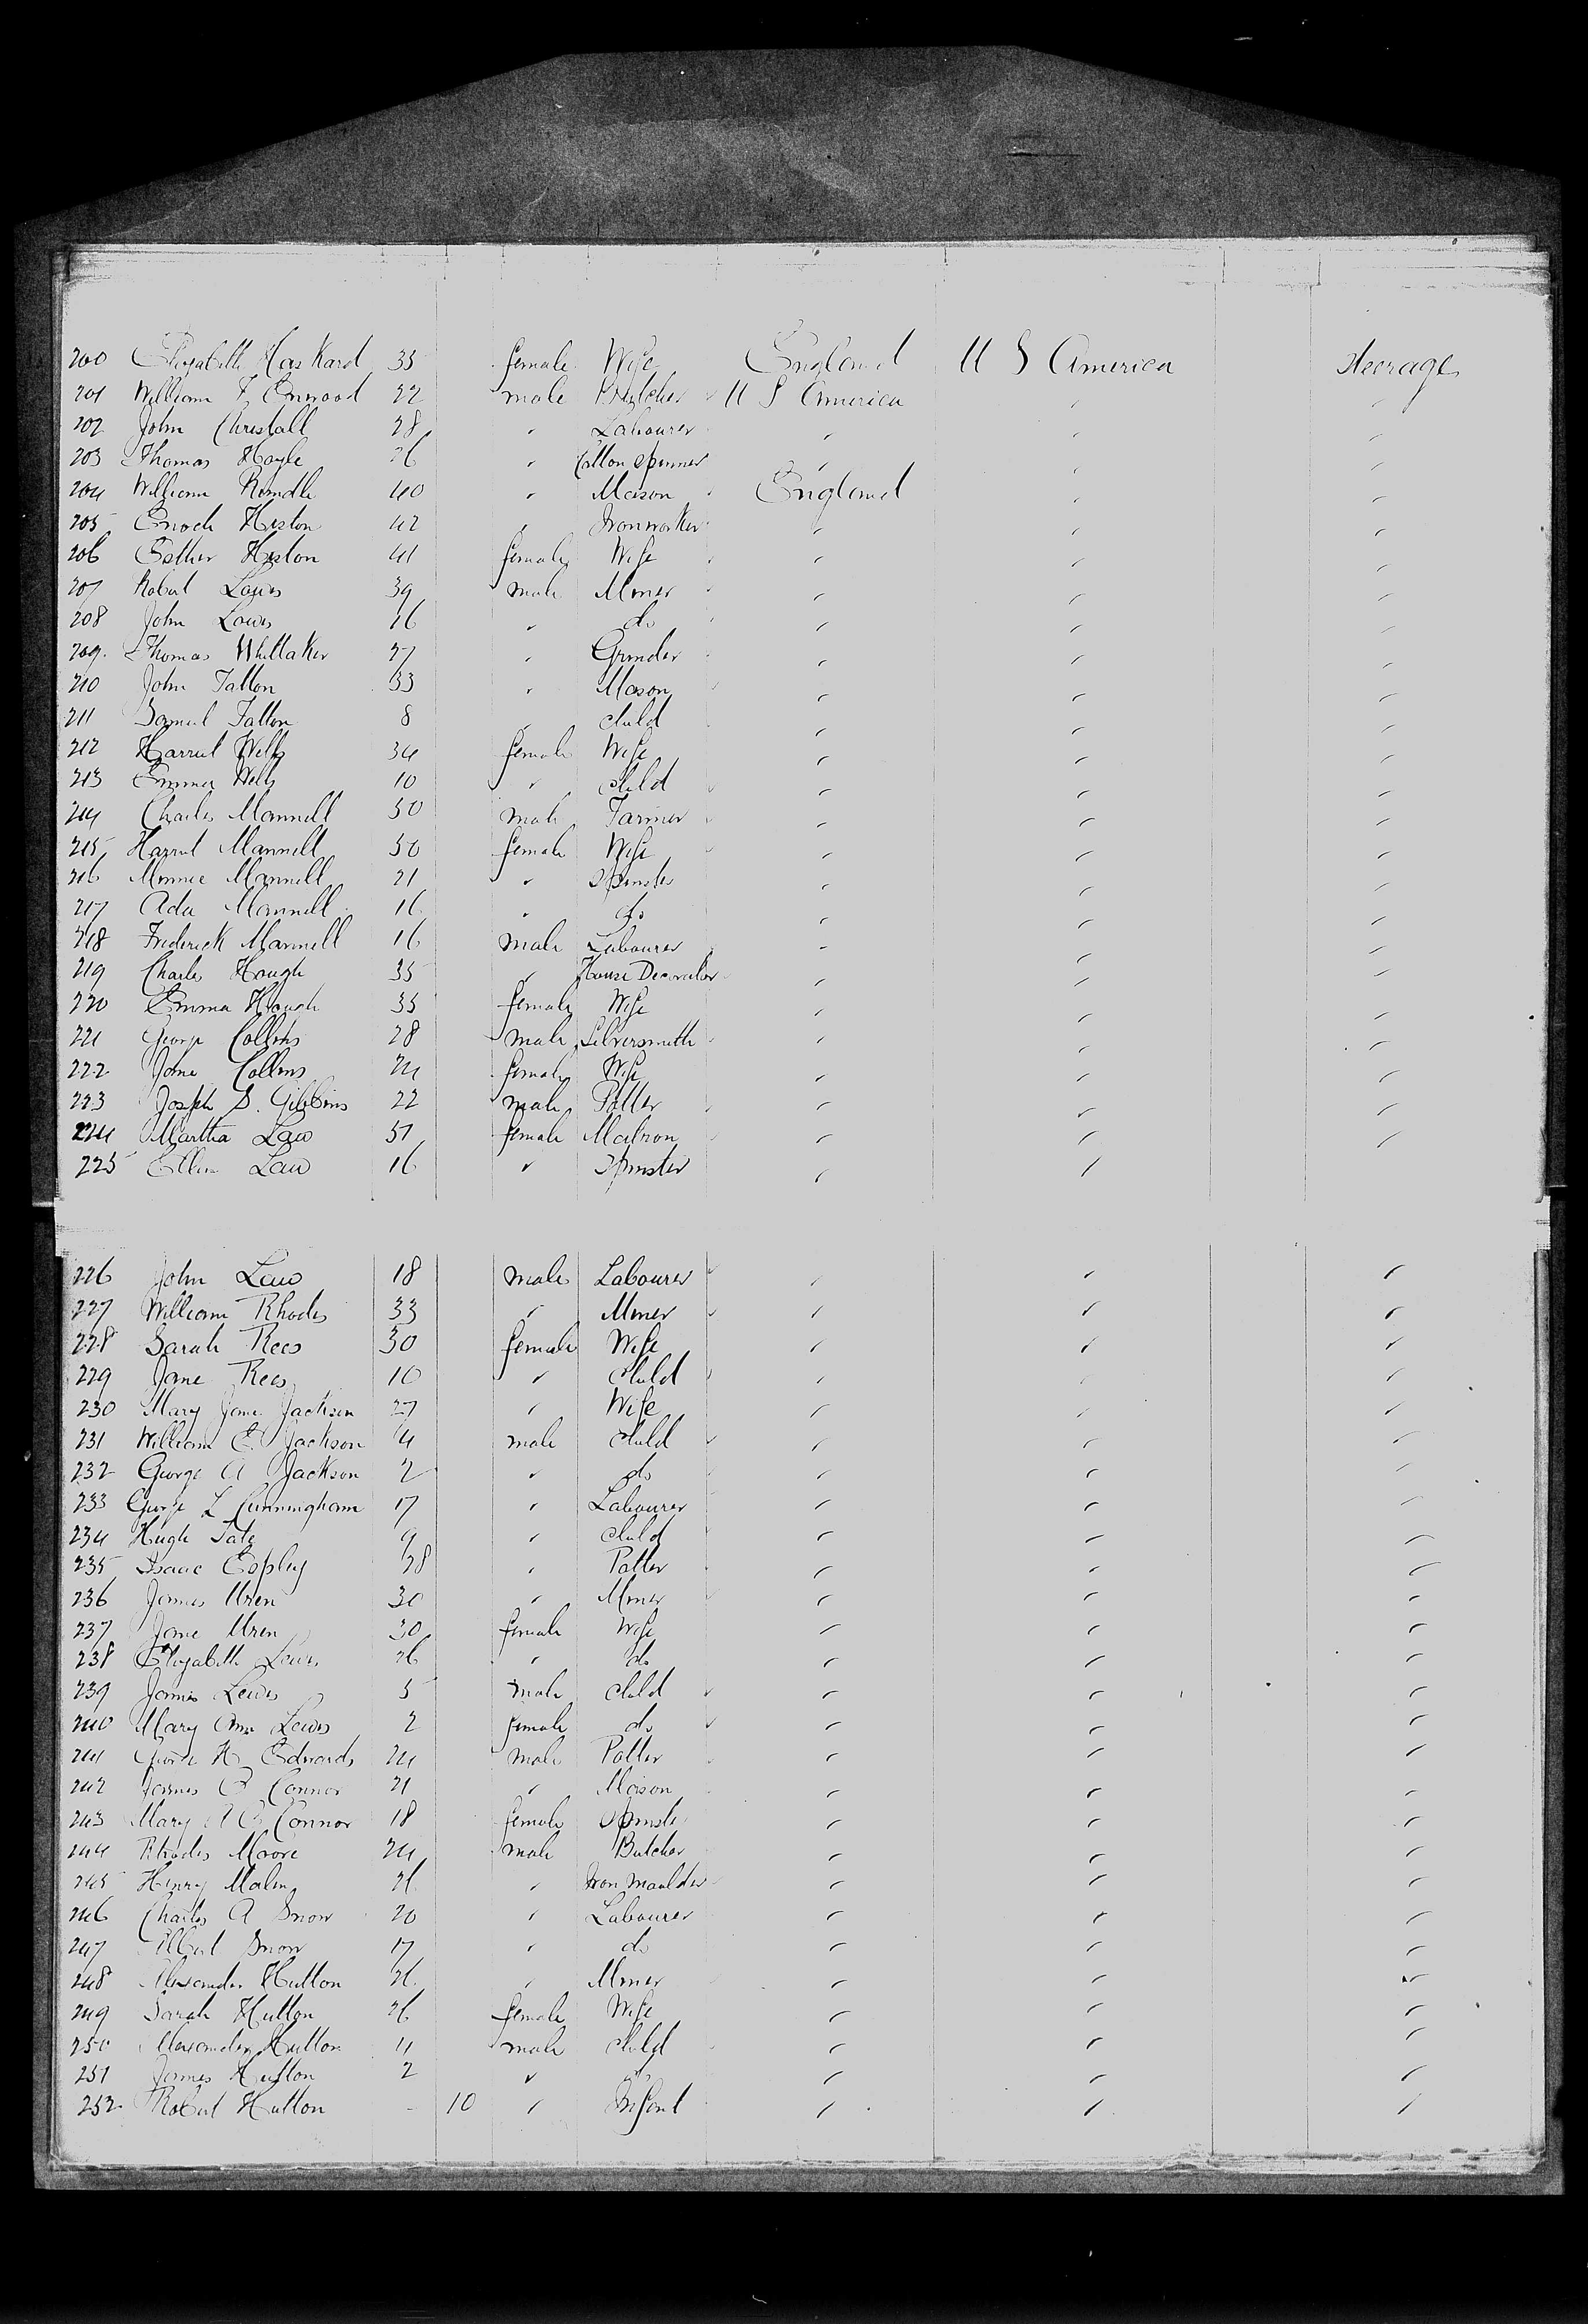 200 Elizabeth Haskard 35 female Wife England U S America Steerage
201 William F Enwood 22 male Butcher U S America " "
202 John Christall 28 " Labourer " " "
203 Thomas Hoyle 26 " Cotton Spinner " " "
204 William Rindle 40 " Mason England " "
205 Enoch Heston 42 " Ironworker " " "
206 Esther Heston 41 female Wife " " "
207 Robert Laws 39 male Miner " " "
208 John Laws 16 " do " " "
209. Thomas Whittaker 27 " Grinder " " "
210 John Tatton 33 " Mason " " "
211 Samuel Tatton 8 " child " " "
212 Harriet Wells 34 female Wife " " "
213 Emma Wells 10 " child " " "
214 Charles Mannell 50 male Farmer " " "
215 Harriet Mannell 50 female Wife " " "
216 Minnie Mannell 21 " Spinster " " "
217 Ada Mannell 16 " do " " "
218 Frederick Mannell 16 male Labourer " " "
219 Charles Hough 35 " House Decorator " " "
220 Emma Hough 35 female Wife " " "
221 George Collins 28 male Silversmith " " "
222 Jane Collins 24 female Wife " " "
223 Joseph S. Gibbins 22 male Potter " " "
224 Martha Law 51 female Matron " " "
225 Ellen Law 16 " Spinster " "
226 John Law 18 male Labourer " " "
227 William Rhodes 33 " Miner " " "
228 Sarah Rees 30 female Wife " " "
229 Jane Rees 10 " child " " "
230 Mary Jane Jackson 27 " Wife " " "
231 William E Jackson 4 male child " " "
232 George A Jackson 2 " do " " "
233 George L Cunningham 17 " Labourer " " "
234 Hugh Tate 9 " child " " "
235 Isaac Copley 38 " Potter " " "
236 James Uren 30 " Miner " " "
237 Jane Uren 30 female Wife " " "
238 Elizabeth Lewis 26 " do " " "
239 James Lewis 5 male child " " "
240 Mary Ann Lewis 2 female do " " "
241 George H Edwards 24 male Potter " " "
242 James O Connor 21 " Mason " " "
243 Mary A O Connor 18 female Spinster " " "
244 Rhodes Moore 24 male Butcher " " "
245 Henry Malin 26 " Iron Moulder " " "
246 Charles A Snow 20 " Labourer " " "
247 Albert Snow 17 " do " " "
248 Alexander Hutton 26 " Miner " " "
249 Sarah Hutton 26 female Wife " " "
250 Alexander Hutton 4 male child " " "
251 James Hutton 2 " " " "
252 Robert Hutton - 10 " Infant " " "